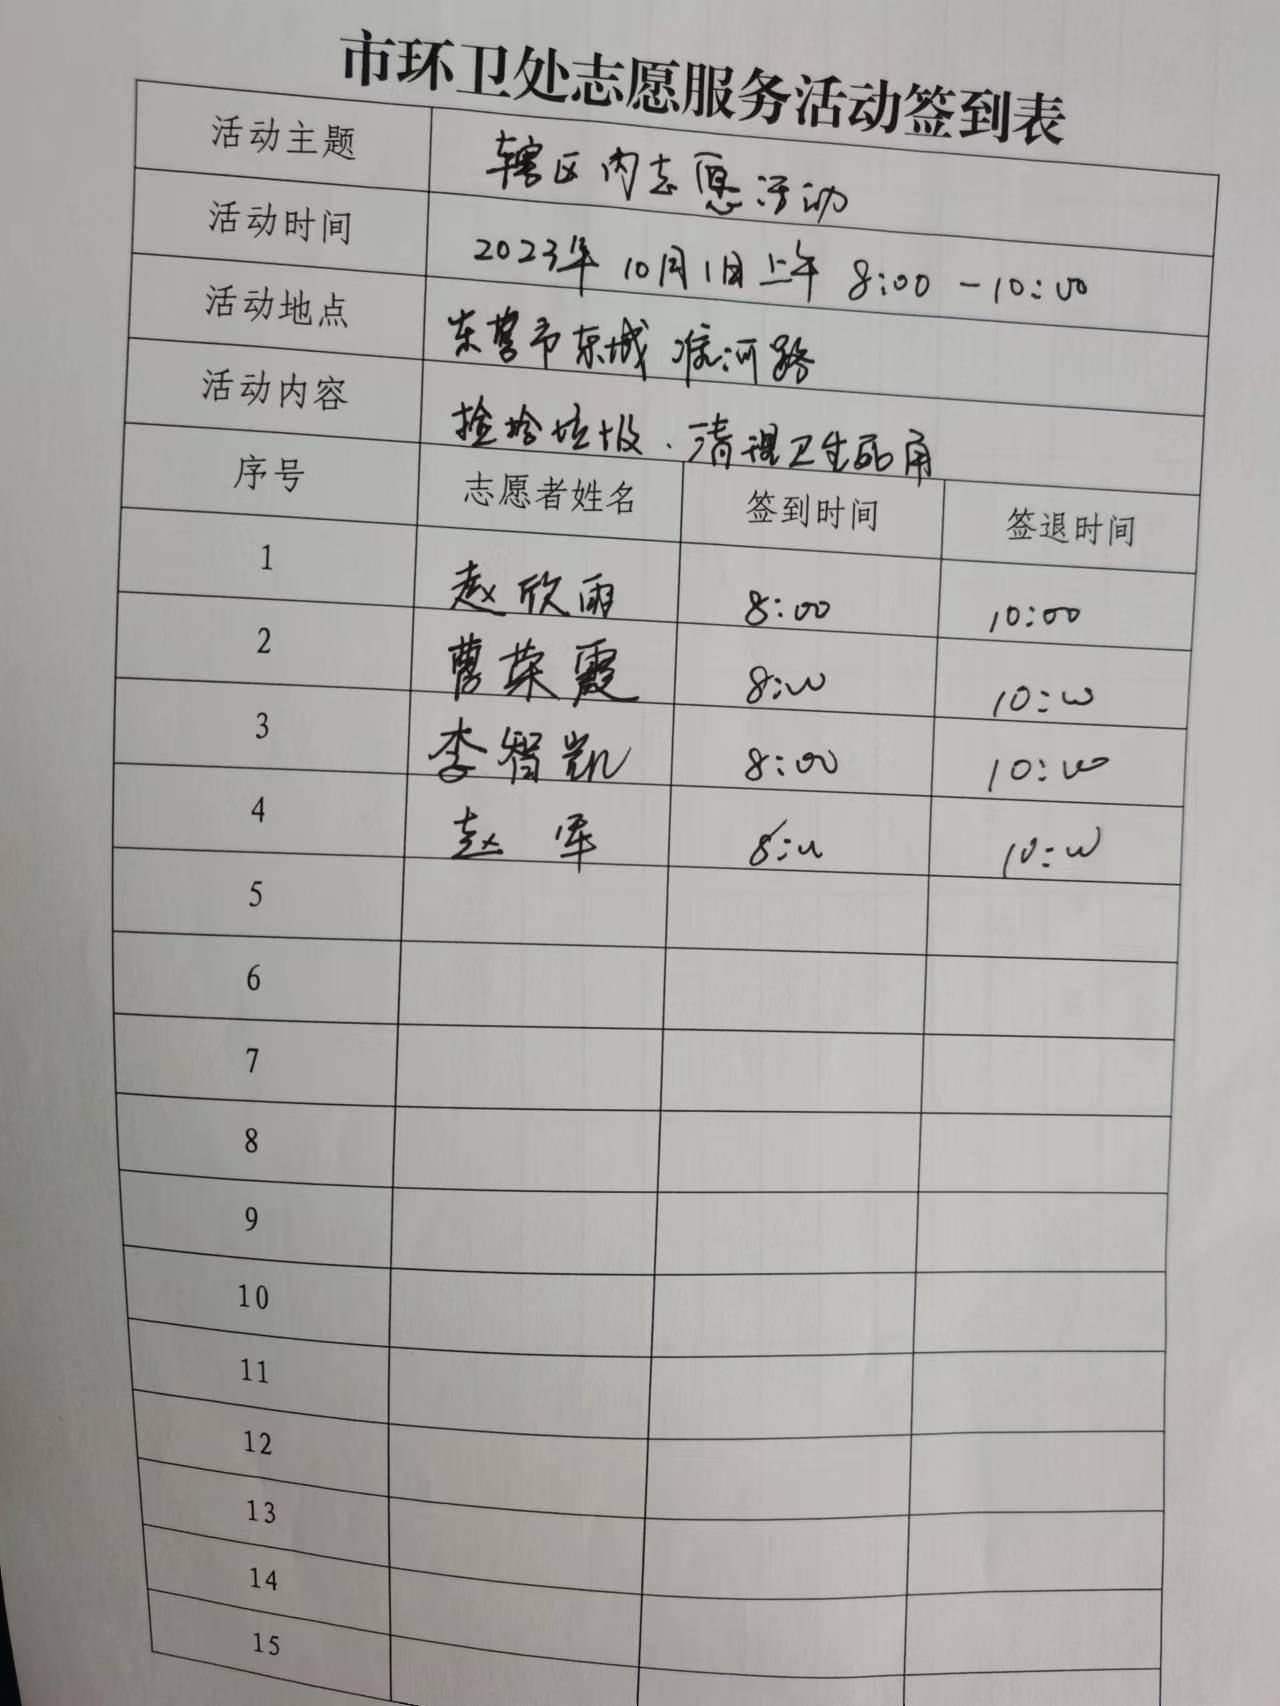 市环卫处志愿服务活动签到表
活动主题 辖区内志愿活动
活动时间 2023年10月1日上午 8:00-10:00
活动地点 东营市东城淮河路
活动内容 捡拾垃圾、清理卫生死角
序号 志愿者姓名 签到时间 签退时间
1 赵欣雨 8:00 10:00
2 曹荣霞 8:00 10:00
3 李智凯 8:00 10:00
4 赵军 8:00 10:00
5
6
7
8
9
10
11
12
13
14
15